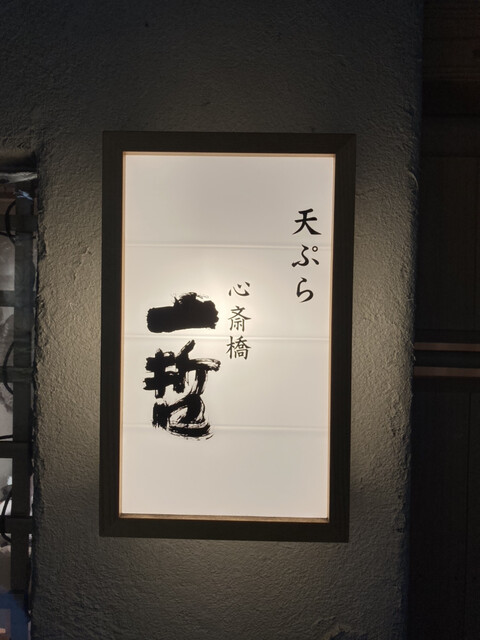 天ぷら
心斎橋
一哲